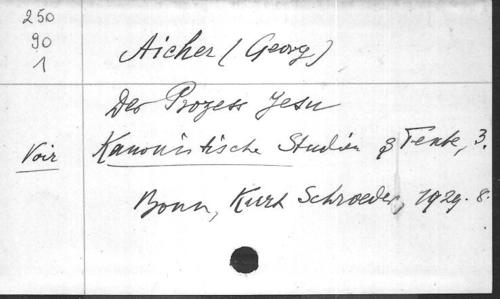 250
90
1
Aicher (Georg)
Der Prozess Jesu
Voir Kanonistische Studien & Texte, 3.
Bonn, Kurt Schroeder, 1929. 8.